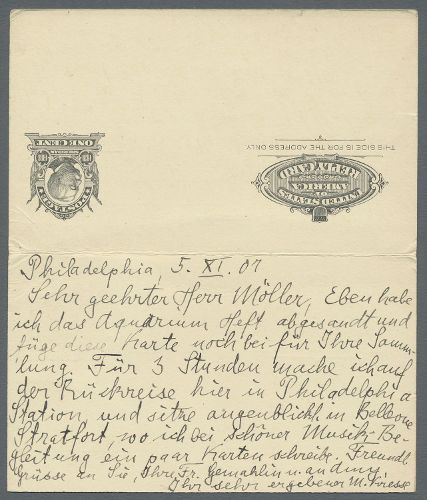 THIS SIDE IS FOR THE ADDRESS ONLY
UNITED STATES
OF
AMERICA
REPLY CARD
POSTAGE
ONE CENT
Philadelphia, 5. XI. 07
Sehr geehrter Herr Möller, Eben habe
ich das Aquarium Heft abgesandt und
füge diese Karte noch bei für Ihre Samm-
lung. Für 3 Stunden mache ich auf
der Rückreise hier in Philadelphia
Station, und sitze augenblickl. in Bellevue
Stratfort, wo ich bei schöner Musik-Be-
gleitung ein paar Karten schreibe. Freundl.
Grüsse an Sie, Ihre Fr. Gemahlin u. an
Ihr sehr ergebener M.